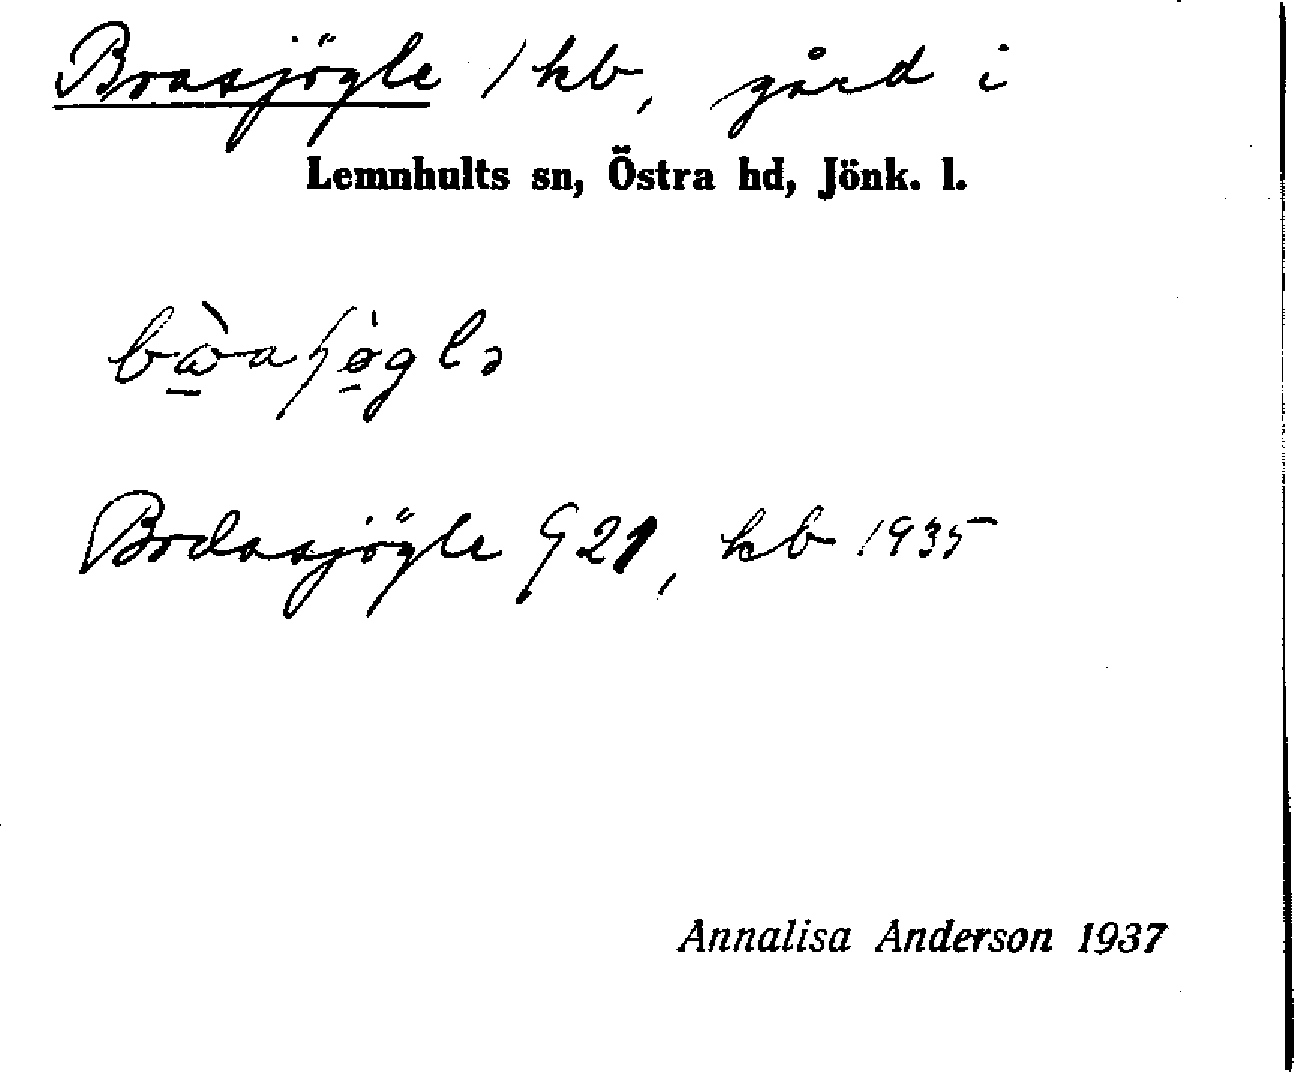 Boasjögle /kb, gård i
Lemnhults sn, Östra hd, Jönk. l.
Bodasjögle G 21, kb 1935
Annalisa Anderson 1937